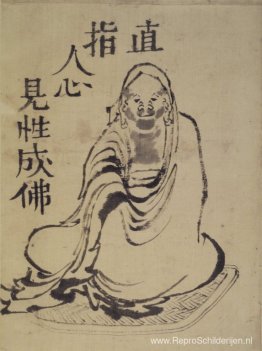 直
指
人
心
見性成佛
www.ReproSchilderijen.nl